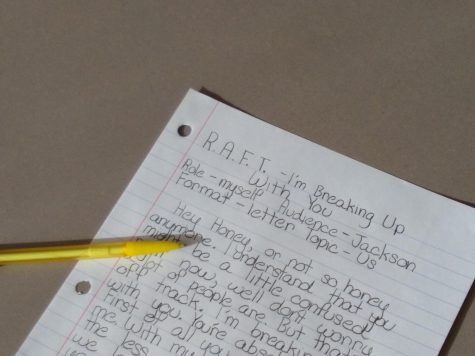 R.A.F.T. - I'm Breaking Up
With You
Role - myself Audience - Jackson
Format - letter Topic - Us
Hey Honey, or not so, honey
anymore. I understand that you
might be a little confused
right now, well don't worry
a lot of people are. But that's
off track. I'm breaking
with you. You're abso
First of all you
me with my
the less
we